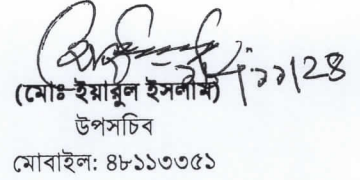 (মোঃ ইয়ারুল ইসলাম)
উপসচিব
মোবাইল: ৪৮১১৩৩৫১